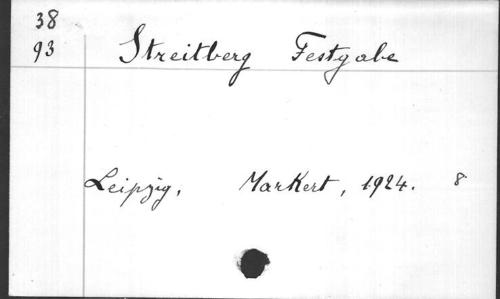 38
93
Streitberg Festgabe
Leipzig, Markert, 1924. 8